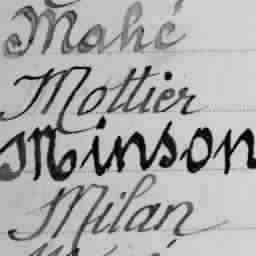 Mahé
Mottier
Minson
Milan